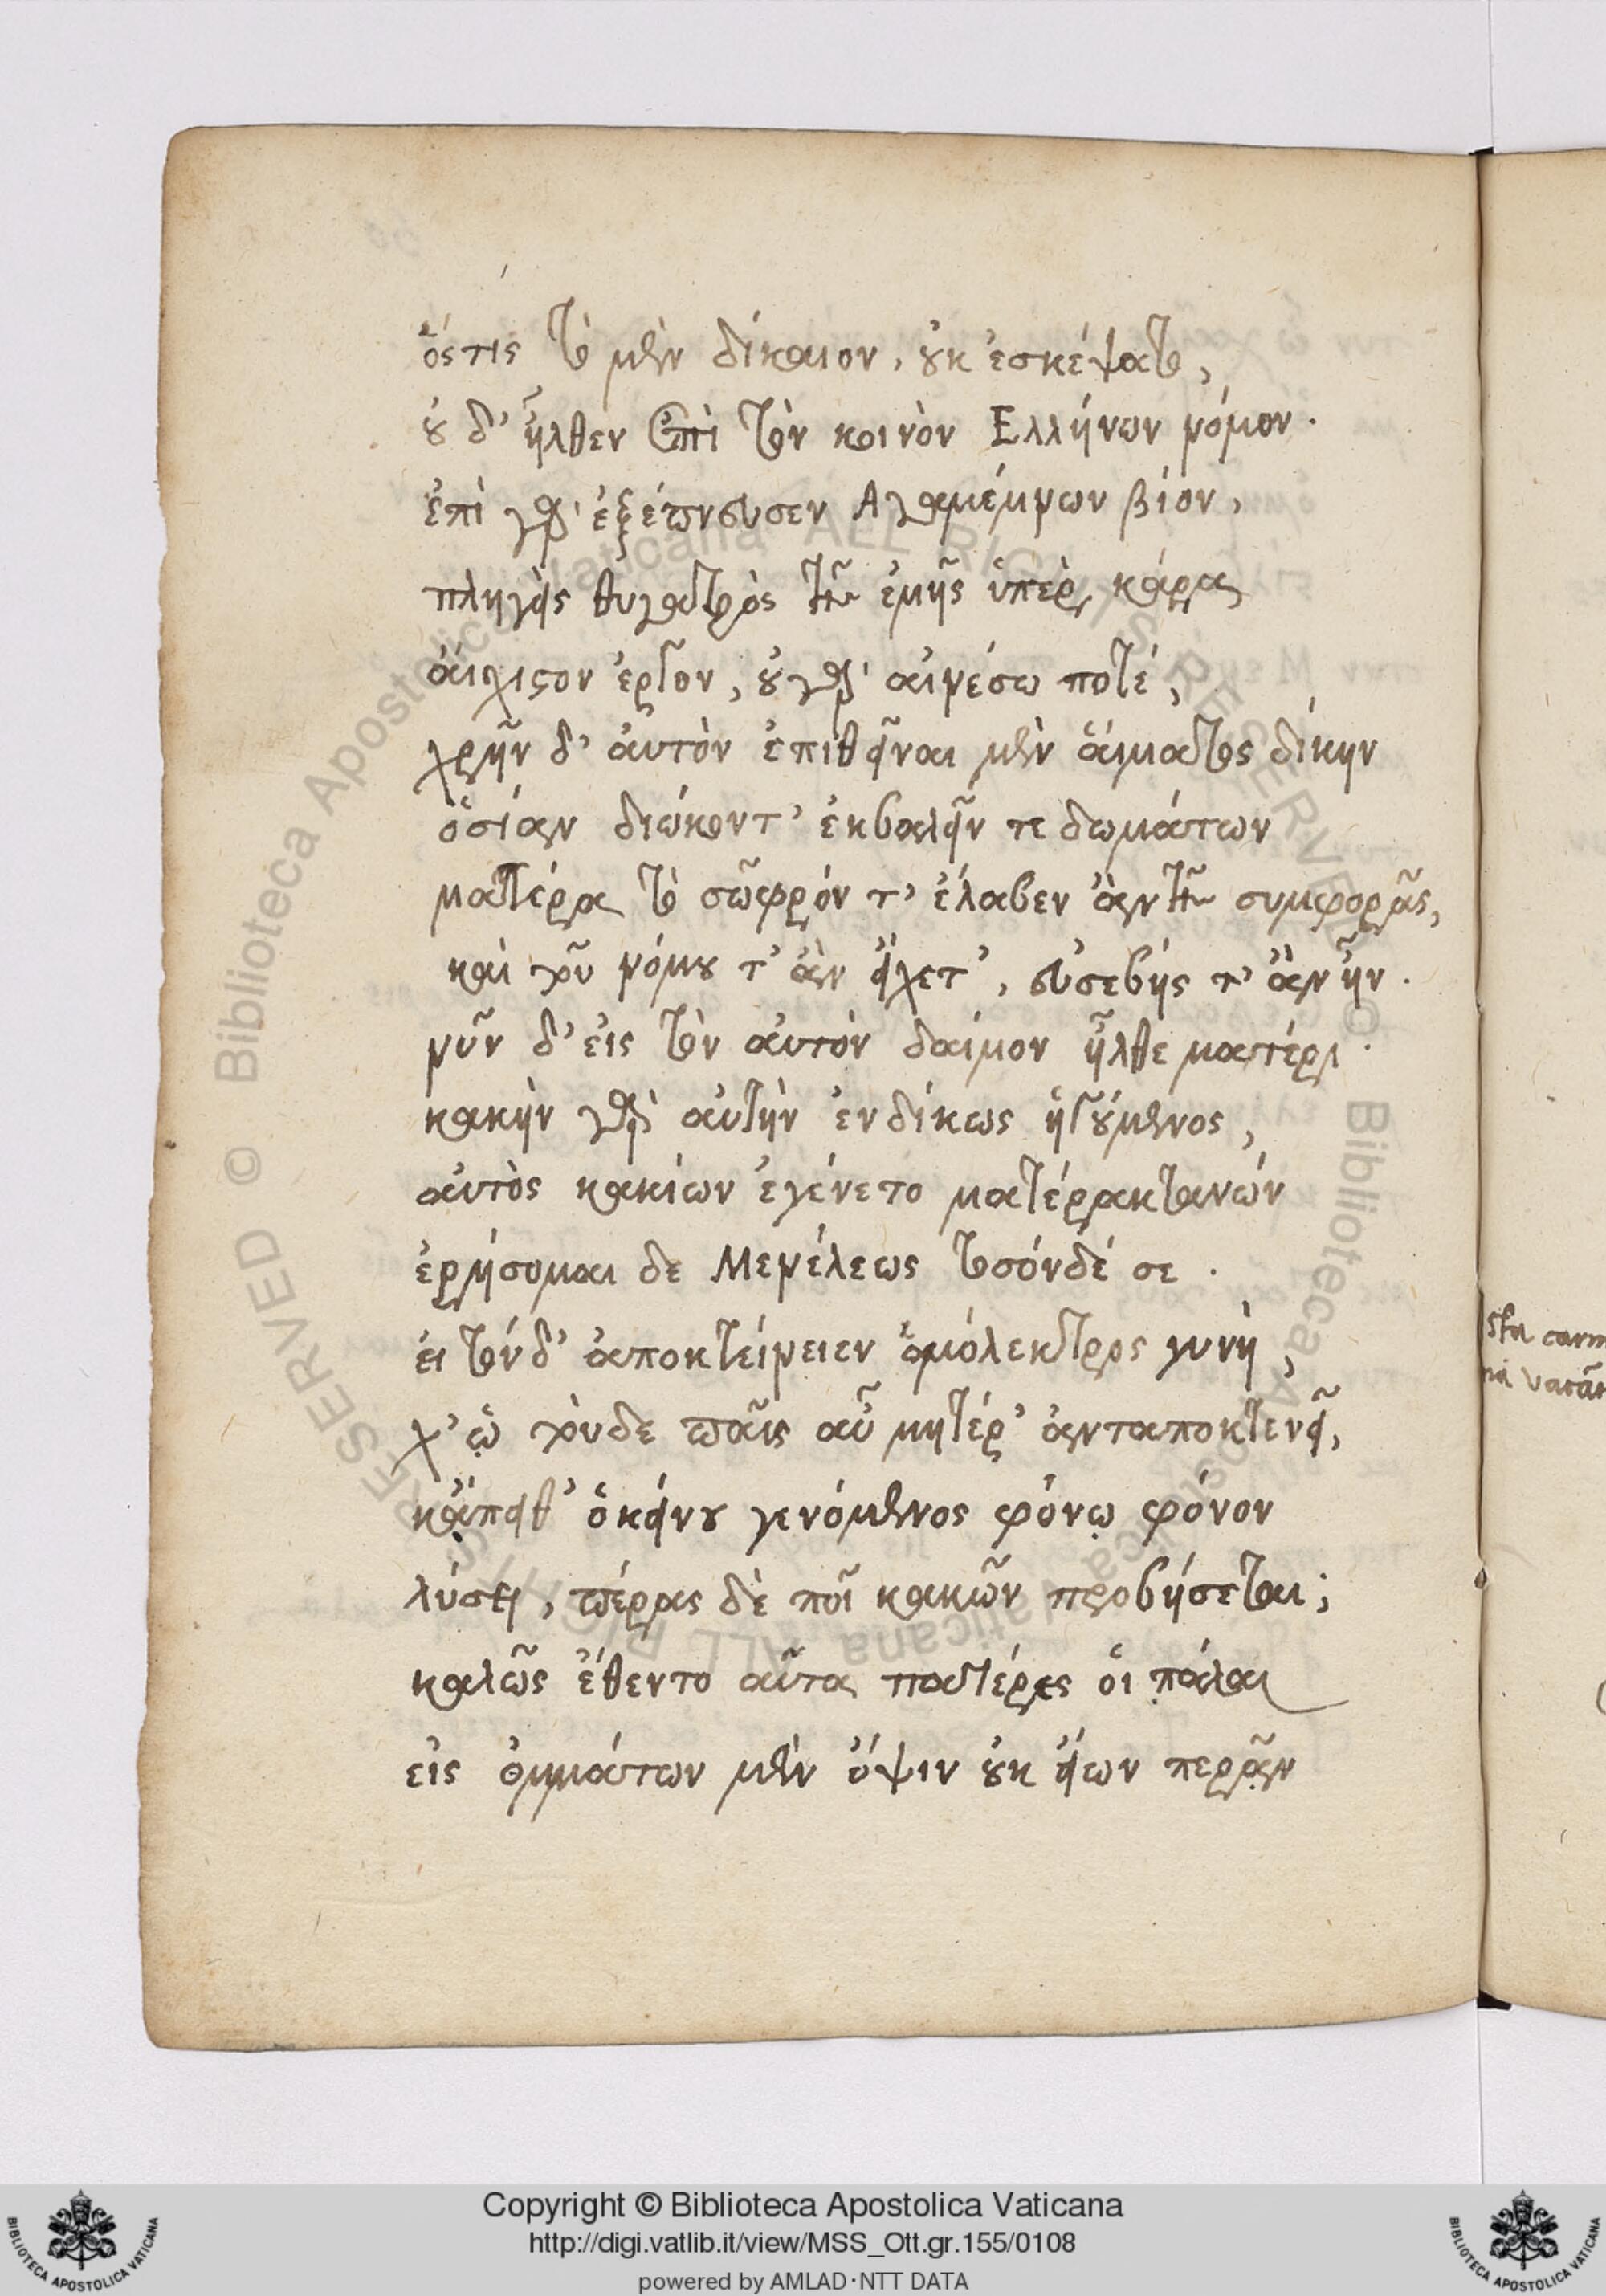 ὅστις τὸ μὲν δίκαιον, οὐκ ἐσκέψατο,
οὐ δ' ἦλθεν ἐπὶ τὸν κοινὸν Ελλήνων νόμον.
ἐπὶ γὰρ ἐξέπνευσεν Αγαμέμνων βίον,
πληγὰς θυγατρὸς τῆς ἐμῆς ὑπὲρ κάρα
ἄιχιστον ἔργον, οὐ γὰρ αἰνέσω ποτέ,
χρῆν δ' ἀυτὸν ἐπιθεῖναι μὲν ἅιματος δίκην
ὁσίαν διώκοντ' ἐκβαλεῖν τε δωμάτων
ματέρα τὸ σῶφρόν τ' ἔλαβεν ἂν τῆς συμφορᾶς,
καὶ τοῦ νόμου τ' ἂν εἴχετ', εὐσεβής τ' ἂν ἦν.
νῦν δ' εἰς τὸν αὐτὸν δαίμον ἦλθε ματέρι.
κακὴν γὰρ αὐτὴν ἐνδίκως ἡγούμενος,
αὐτὸς κακίων ἐγένετο ματέρα κτανών
ἐρήσομαι δε Μενέλεως τοσόνδέ σε.
ἐι τόνδ' ἀποκτείνειεν ὁμόλεκτρος γυνὴ,
χ' ᾧ τοὺδε παῖς αὖ μητέρ' ἀνταποκτενεῖ,
κἄπειθ' ὁ κείνου γενόμενος φόνῳ φόνον
λύσει, πέρας δὲ ποῖ κακῶν προβήσεται;
καλῶς ἔθεντο αῦτα πατέρες ὁι πάλαι
εἰς ὀμμάτων μὲν ὄψιν οὐκ εἴων περᾶν
sta carm
na vacāt
Copyright © Biblioteca Apostolica Vaticana
http://digi.vatlib.it/view/MSS_Ott.gr.155/0108
powered by AMLAD·NTT DATA